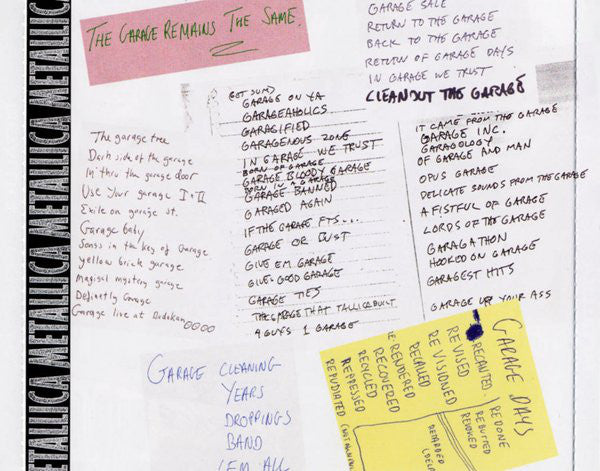 METALLICA METALLICA METALLICA METALLICA
THE GARAGE REMAINS THE SAME.
GARAGE SALE
RETURN TO THE GARAGE
BACK TO THE GARAGE
RETURN OF GARAGE DAYS
IN GARAGE WE TRUST
CLEANOUT THE GARAGE
The garage tree
Dark side of the garage
In thru the garage door
Use Your garage I + II
Exile on garage st.
Garage baby
Songs in the key of Garage
yellow brick garage
Magical mystery garage
Definatly Garage
Garage live at Budokan
GARAGE ON YA
GARAGEAHOLICS
GARAGIFIED
GARAGENOUS ZONE
IN GARAGE WE TRUST
BORN OF GARAGE
GARAGE BLOODY GARAGE
BORN IN A GARAGE
GARAGE BANNED
GARAGED AGAIN
IF THE GARAGE FITS...
GARAGE OR BUST
GIVE EM GARAGE
GIVE GOOD GARAGE
GARAGE TIES
THE GARAGE THAT TALLICA BUILT
4 GUYS 1 GARAGE
IT CAME FROM THE GARAGE
GARAGE INC.
GARAGOLOGY
OF GARAGE AND MAN
OPUS GARAGE
DELICATE SOUNDS FROM THE GARAGE
A FISTFUL OF GARAGE
LORDS OF THE GARAGE
GARAGATHON
HOOKED ON GARAGE
GARAGEST HITS
GARAGE UP YOUR ASS
GARAGE CLEANING
YEARS
DROPPINGS
BAND
'EM ALL
GARAGE DAYS
REDONE
REBUTTED
REVOKED
RECANTED
REVISED
RE VISIONED
RECALLED
RE RENDERED
RECOVERED
RECYCLED
REPRESSED
REPUDIATED
RETARDED